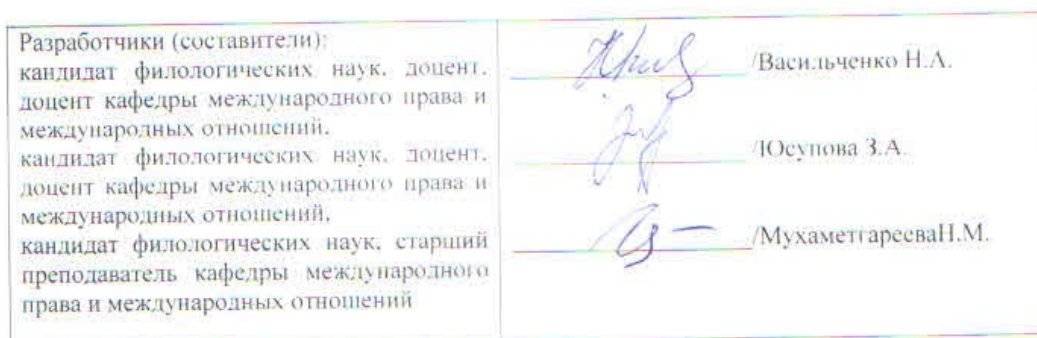 Разработчики (составители):
кандидат филологических наук, доцент,
доцент кафедры международного права и
международных отношений,
кандидат филологических наук, доцент,
доцент кафедры международного права и
международных отношений,
кандидат филологических наук, старший
преподаватель кафедры международного
права и международных отношений
/Васильченко Н.А.
/Юсупова З.А.
/МухаметгарееваН.М.